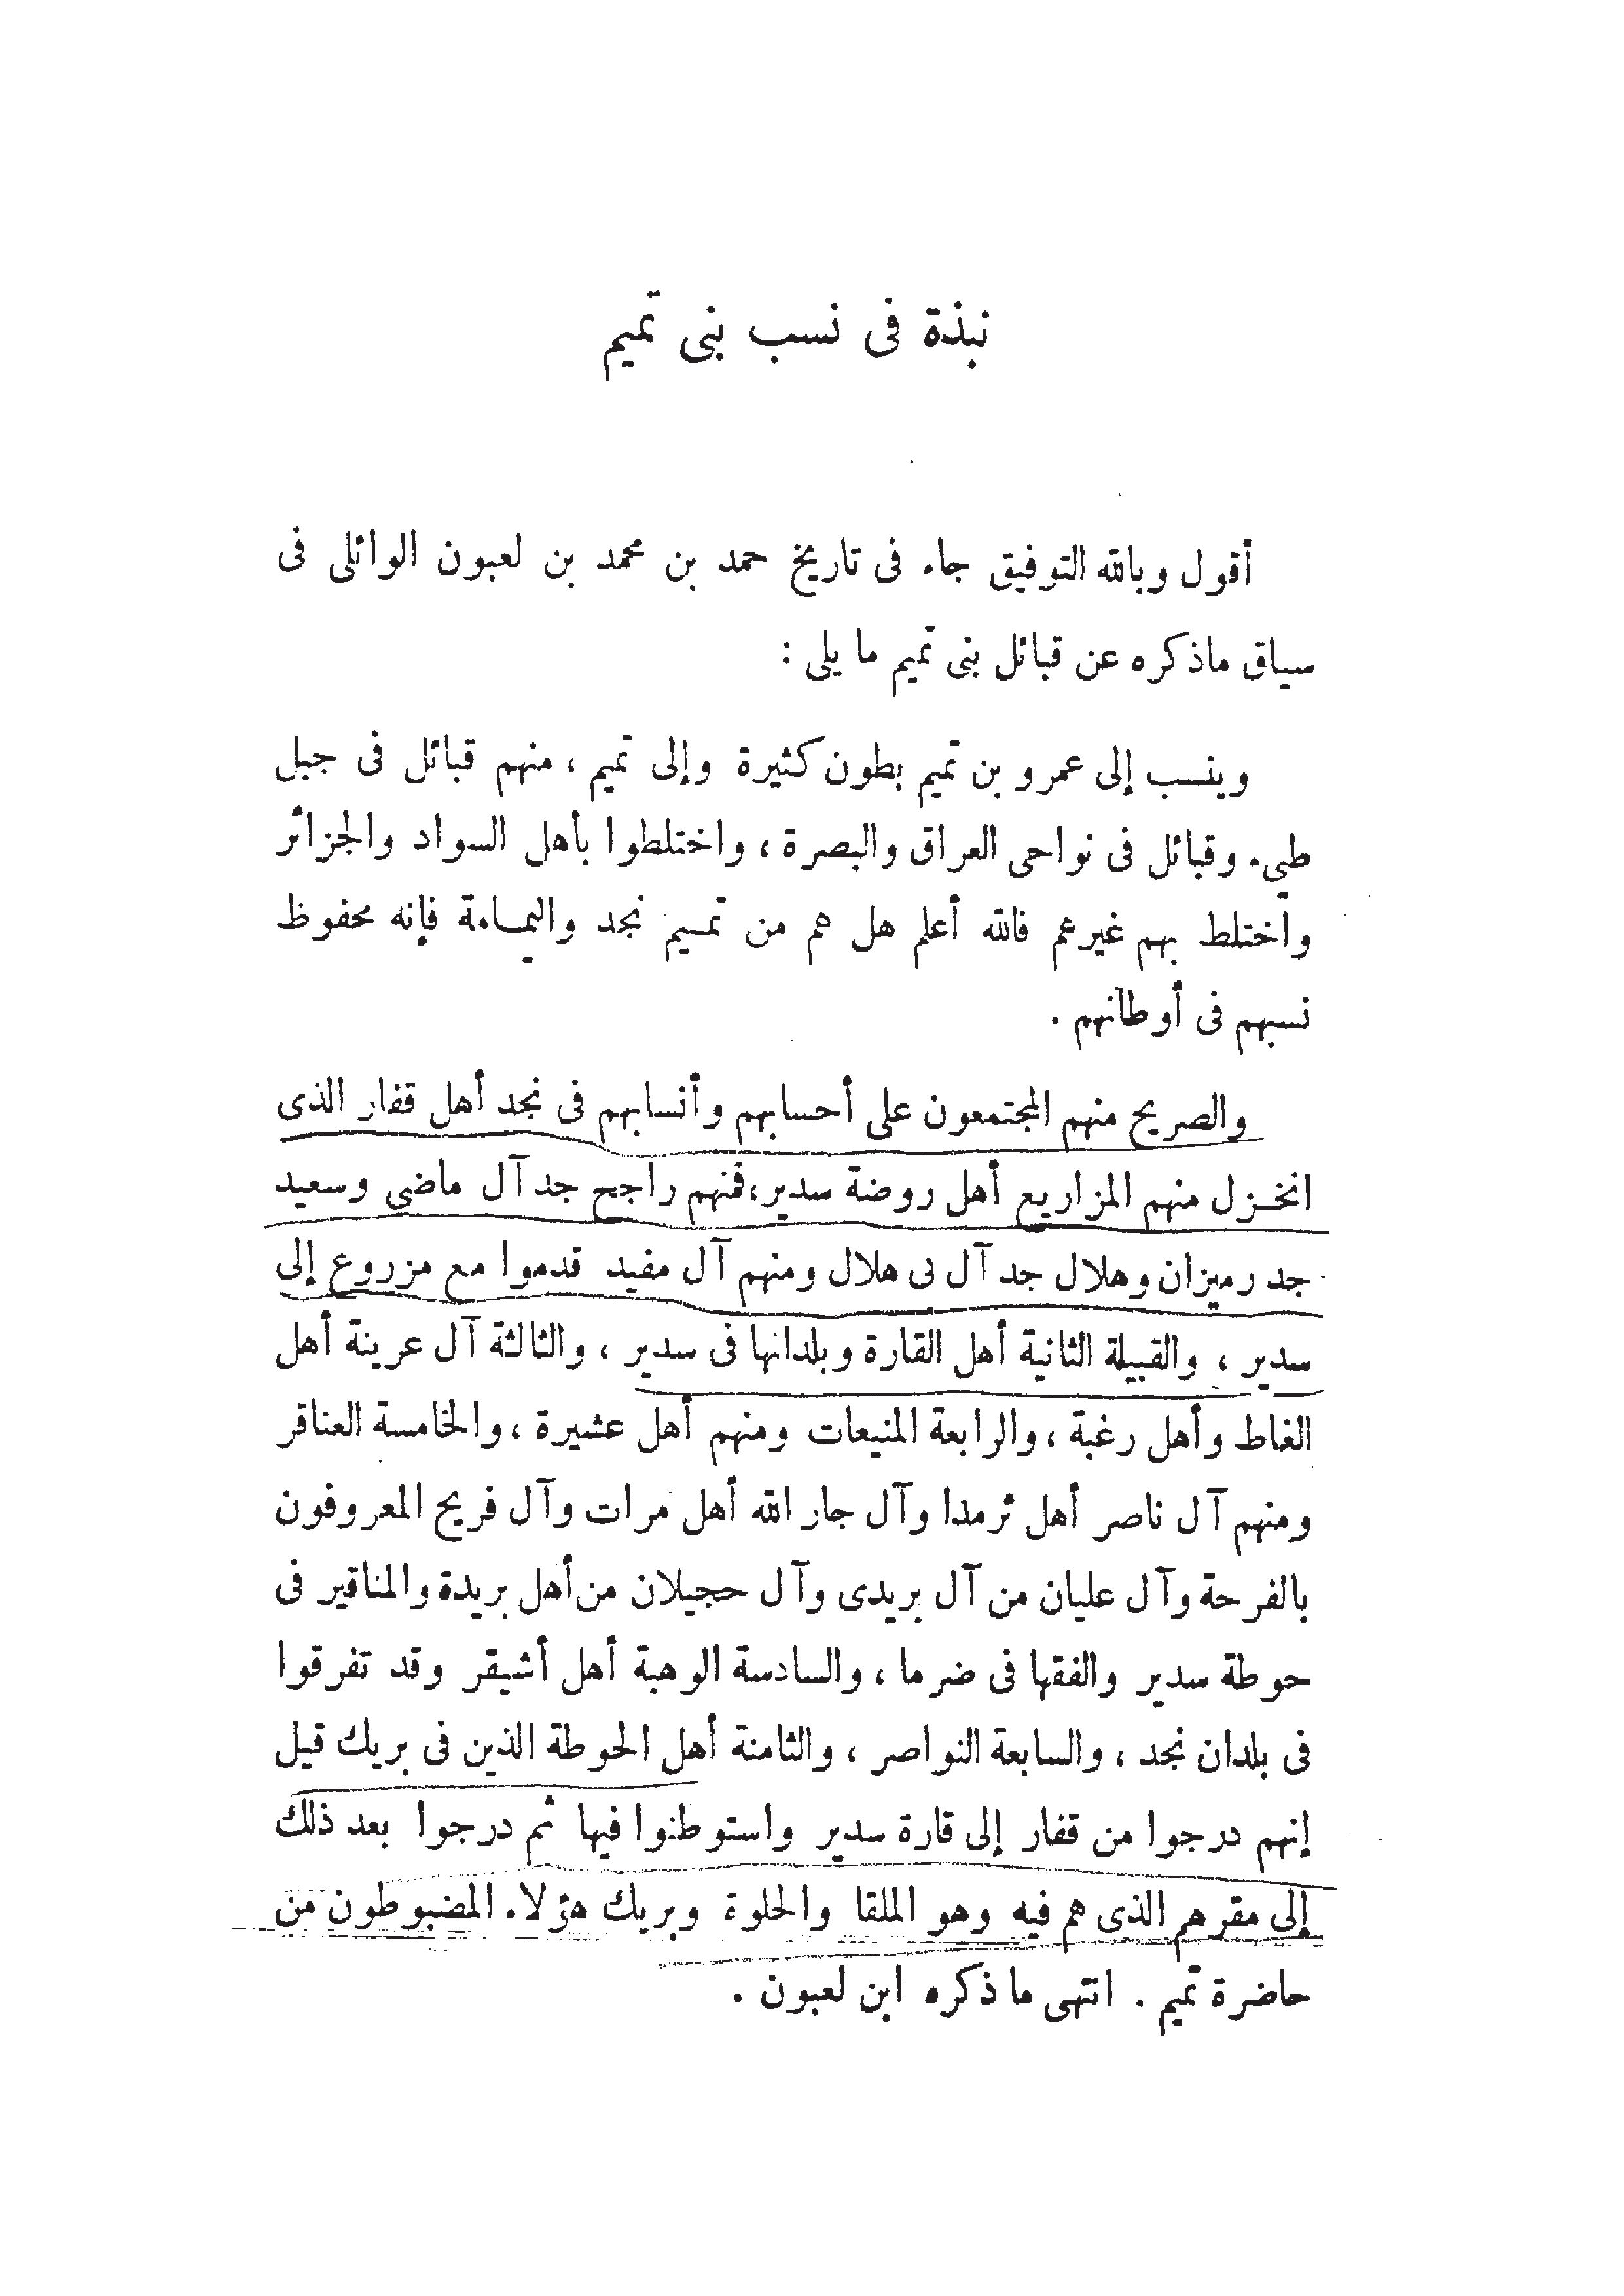 نبذة فى نسب بنى تميم
أقول وبالله التوفيق جاء فى تاريخ حمد بن محمد بن لعبون الوائلى فى
سياق ماذكره عن قبائل بنى تميم ما يلى :
وينسب إلى عمرو بن تميم بطون كثيرة وإلى تميم ، منهم قبائل فى جبل
طيء وقبائل فى نواحى العراق والبصرة ، واختلطوا بأهل السواد والجزائر
واختلط بهم غيرهم فالله أعلم هل هم من تميم نجد واليمامة فإنه محفوظ
نسبهم فى أوطانهم .
والصريح منهم المجتمعون على أحسابهم وأنسابهم فى نجد أهل قفار الذى
انخزل منهم المزاريع أهل روضة سدير ، فمنهم راجح جد آل ماضى وسعيد
جد رميزان وهلال جد آل بى هلال ومنهم آل مفيد قدموا مع مزروع إلى
سدير ، والقبيلة الثانية أهل القارة وبلدانها فى سدير ، والثالثة آل عرينة أهل
الغاط وأهل رغبة ، والرابعة المنيعات ومنهم أهل عشيرة ، والخامسة العناقر
ومنهم آل ناصر أهل ثرمدا وآل جار الله أهل مرات وآل فريح المعروفون
بالفرحة وآل عليان من آل بريدى وآل حجيلان من أهل بريدة والمناقير فى
حوطة سدير والفقها فى ضرما ، والسادسة الوهبة أهل أشيقر وقد تفرقوا
فى بلدان نجد ، والسابعة النواصر ، والثامنة أهل الحوطة الذين فى بريك قيل
إنهم درجوا من قفار إلى قارة سدير واستوطنوا فيها ثم درجوا بعد ذلك
إلى مقرهم الذى هم فيه وهو الملقا والحلوة وبريك هؤلاء المضبوطون من
حاضرة تميم . انتهى ما ذكره ابن لعبون .